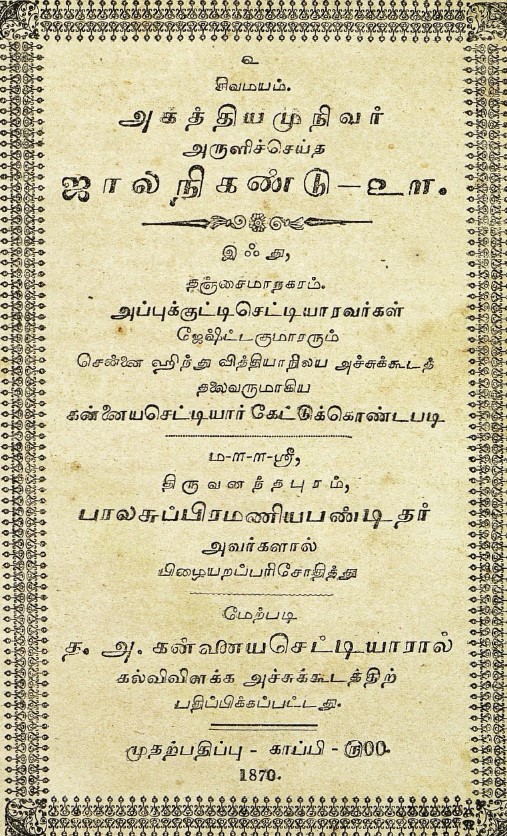 உ
சிவமயம்.
அகத்தியமுநிவர்
அருளிச்செய்த
ஜாலநிகண்டு - உ௱.
இஃது,
தஞ்சைமாநகரம்.
அப்புக்குட்டிசெட்டியாரவர்கள்
ஜேஷ்ட்டகுமாரரும்
சென்னை ஹிந்து வித்தியாநிலய அச்சுக்கூடத்
தலைவருமாகிய
கன்னையசெட்டியார் கேட்டுக்கொண்டபடி
ம-௱-௱-ஸ்ரீ,
திருவனந்தபுரம்,
பாலசுப்பிரமணியபண்டிதர்
அவர்களால்
பிழையறப்பரிசோதித்து
மேற்படி
த. அ. கன்னையசெட்டியாரால்
கல்விவிளக்க அச்சுக்கூடத்திற்
பதிப்பிக்கப்பட்டது.
முதற்பதிப்பு - காப்பி - ௫00.
1870.